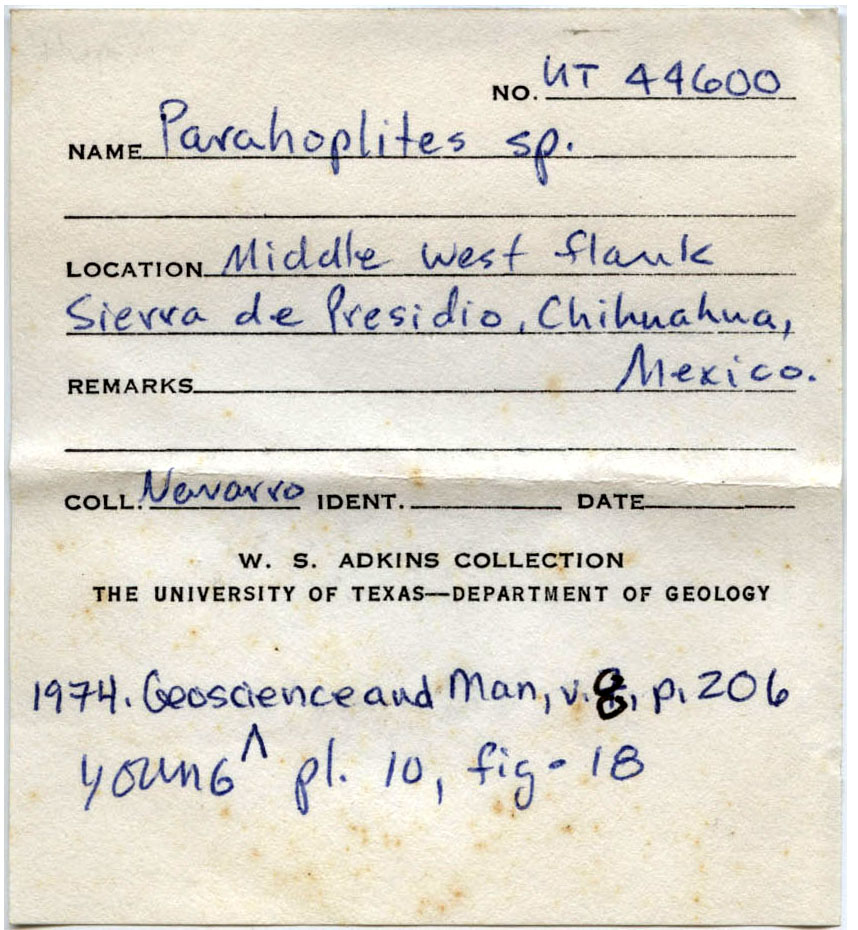 NO. UT 44600
NAME Parahoplites sp.
LOCATION Middle west flank
Sierra de Presidio, Chihuahua,
REMARKS Mexico.
COLL. Navarro IDENT. DATE
W. S. ADKINS COLLECTION
THE UNIVERSITY OF TEXAS—DEPARTMENT OF GEOLOGY
1974. Geoscience and Man, v. 8, p. 206
YOUNG ^ pl. 10, fig - 18